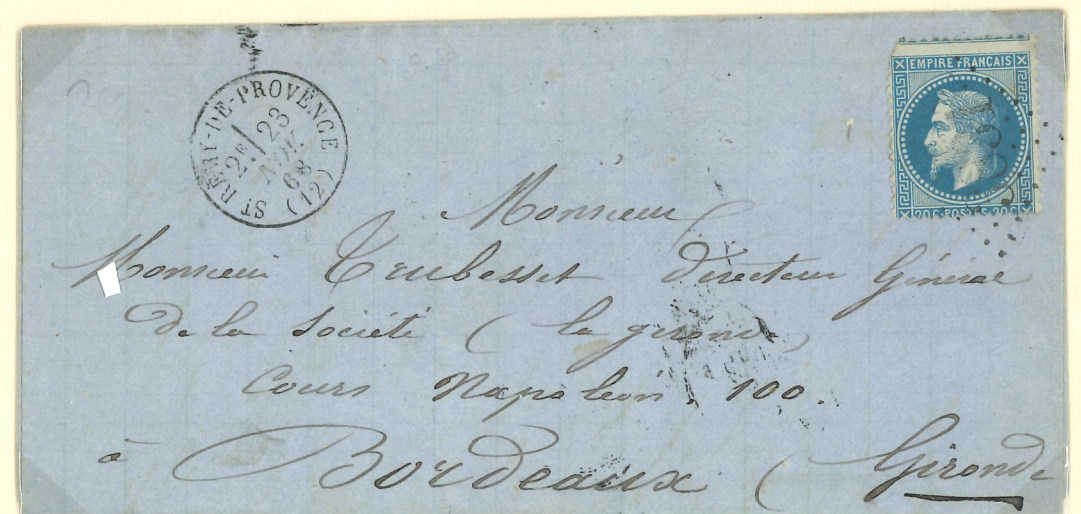 ST REMY-DE-PROVENCE (12)
2E
23
NOV.
68
EMPIRE FRANCAIS
20 C. POSTES 20 C
Monsieur
Monsieur Teubesset Directeur Général
De la Société ( la gironde
Cours Napoléon. 100.
à Bordeaux ( Gironde